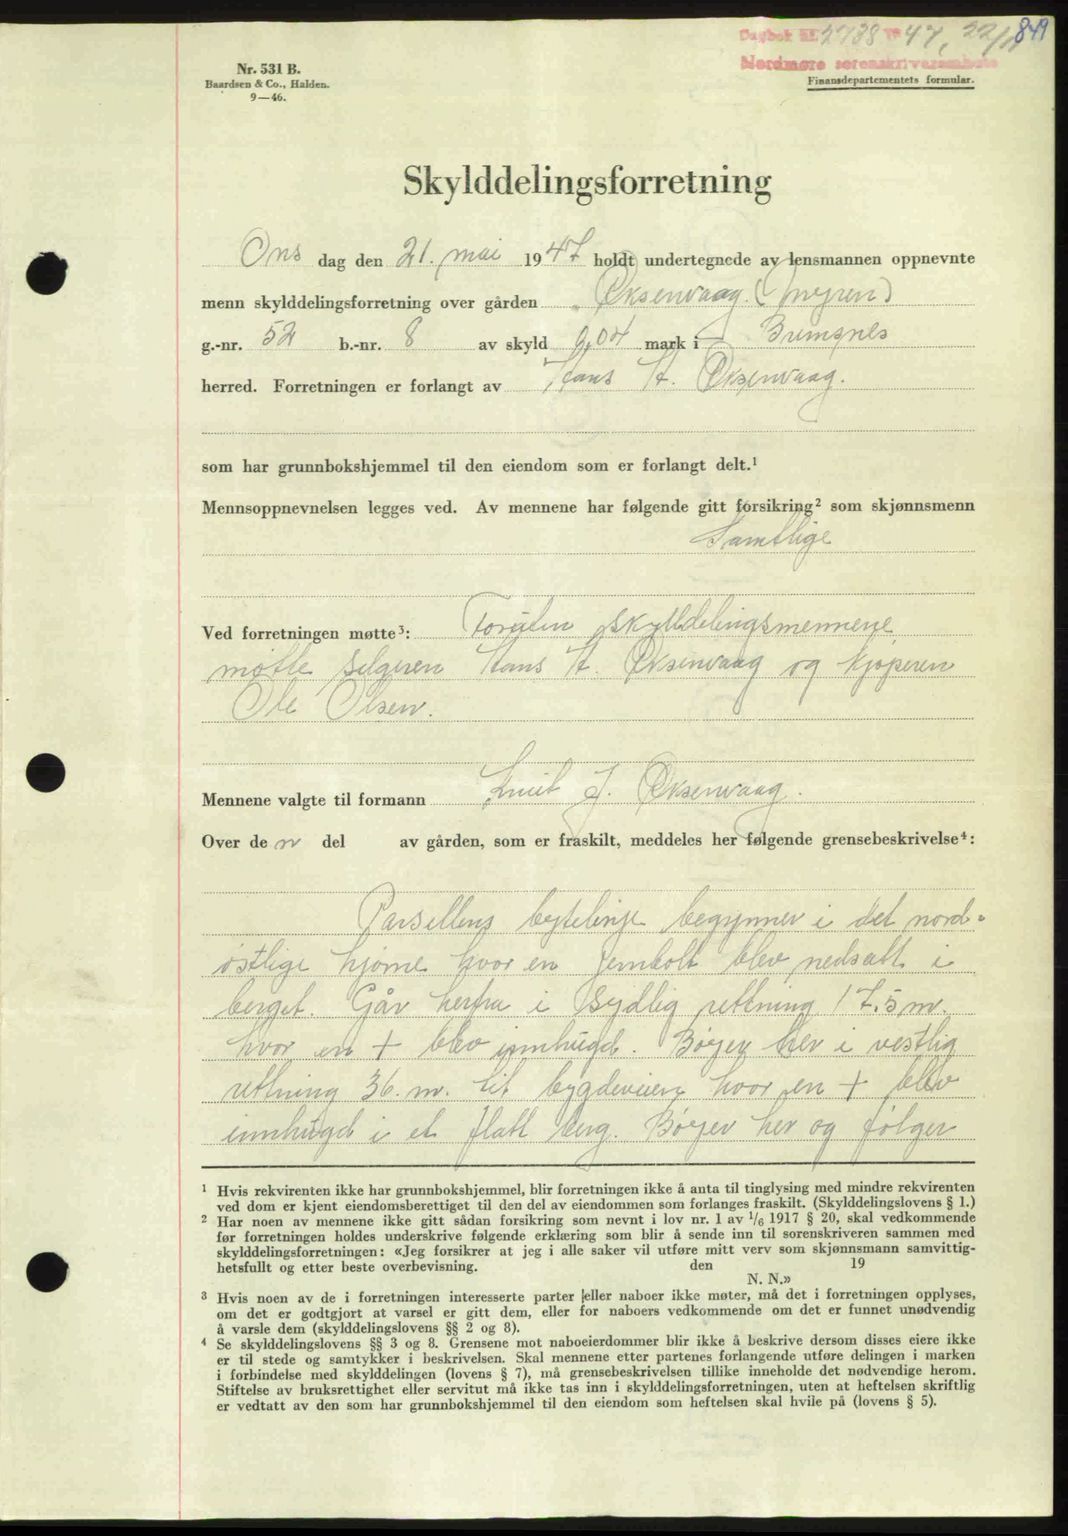 849
Dagbok nr. 2738 19 47, 22/11
Nordmøre sorenskriverembete
Nr. 531 B.
Baardsen & Co., Halden.
9—46.
Finansdepartementets formular.
Skylddelingsforretning
Ons dag den 21. mai 1947 holdt undertegnede av lensmannen oppnevnte
menn skylddelingsforretning over gården Øksenvaag. (Myren)
g.-nr. 52 b.-nr. 8 av skyld 0,04 mark i Bremsnes
herred. Forretningen er forlangt av Hans H. Øksenvaag.
som har grunnbokshjemmel til den eiendom som er forlangt delt.¹
Mennsoppnevnelsen legges ved. Av mennene har følgende gitt forsikring² som skjønnsmenn
Samtlige
Ved forretningen møtte³: Foruten skylddelingsmennene
møtte selgeren Hans H. Øksenvaag og kjøperen
Ole Olsen.
Mennene valgte til formann Knut J. Øksenvaag.
Over de n del av gården, som er fraskilt, meddeles her følgende grensebeskrivelse⁴:
Parsellens bytelinje begynner i det nord-
østlige hjørne hvor en jernbolt blev nedsatt i
berget. Går herfra i sydlig rettning 17.5 m.
hvor en + blev innhugd. Bøyer her i vestlig
rettning 36. m. til bygdeveien hvor en + blev
innhugd i et flatt berg. Bøyer her og følger
¹ Hvis rekvirenten ikke har grunnbokshjemmel, blir forretningen ikke å anta til tinglysing med mindre rekvirenten
ved dom er kjent eiendomsberettiget til den del av eiendommen som forlanges fraskilt. (Skylddelingslovens § 1.)
² Har noen av mennene ikke gitt sådan forsikring som nevnt i lov nr. 1 av 1/6 1917 § 20, skal vedkommende
før forretningen holdes underskrive følgende erklæring som blir å sende inn til sorenskriveren sammen med
skylddelingsforretningen: «Jeg forsikrer at jeg i alle saker vil utføre mitt verv som skjønnsmann samvittig-
hetsfullt og etter beste overbevisning. den 19
N. N.»
³ Hvis noen av de i forretningen interesserte parter eller naboer ikke møter, må det i forretningen opplyses,
om det er godtgjort at varsel er gitt dem, eller for naboers vedkommende om det er funnet unødvendig
å varsle dem (skylddelingslovens §§ 2 og 8).
⁴ Se skylddelingslovens §§ 3 og 8. Grensene mot naboeierdommer blir ikke å beskrive dersom disses eiere ikke
er til stede og samtykker i beskrivelsen. Skal mennene etter partenes forlangende utføre delingen i marken
i forbindelse med skylddelingen (lovens § 7), må grensebeskrivelsen tillike inneholde det nødvendige herom.
Stiftelse av bruksrettighet eller servitut må ikke tas inn i skylddelingsforretningen, uten at heftelsen skriftlig
er vedtatt av den som har grunnbokshjemmel til den eiendom som heftelsen skal hvile på (lovens § 5).